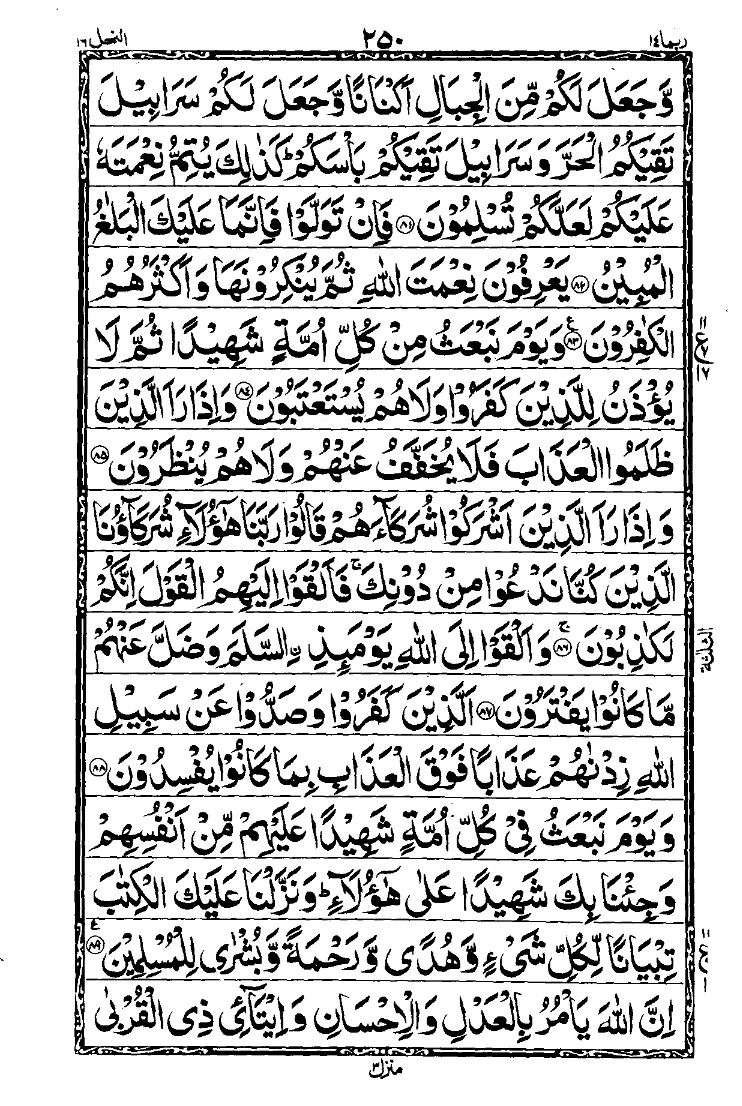 ربما ١٤
٢٥٠
النحل ١٦
وَّجَعَلَ لَكُمْ مِّنَ الْجِبَالِ اَكْنَانًا وَّجَعَلَ لَكُمْ سَرَابِيْلَ
تَقِيْكُمُ الْحَرَّ وَسَرَابِيْلَ تَقِيْكُمْ بَاْسَكُمْ ؕ كَذٰلِكَ يُتِمُّ نِعْمَتَهٗ
عَلَيْكُمْ لَعَلَّكُمْ تُسْلِمُوْنَ ﴿۸۱﴾ فَاِنْ تَوَلَّوْا فَاِنَّمَا عَلَيْكَ الْبَلٰغُ
الْمُبِيْنُ ﴿۸۲﴾ يَعْرِفُوْنَ نِعْمَتَ اللّٰهِ ثُمَّ يُنْكِرُوْنَهَا وَاَكْثَرُهُمُ
الْكٰفِرُوْنَ ﴿۸۳﴾ وَيَوْمَ نَبْعَثُ مِنْ كُلِّ اُمَّةٍ شَهِيْدًا ثُمَّ لَا
يُؤْذَنُ لِلَّذِيْنَ كَفَرُوْا وَلَا هُمْ يُسْتَعْتَبُوْنَ ﴿۸۴﴾ وَاِذَا رَاَ الَّذِيْنَ
ظَلَمُوا الْعَذَابَ فَلَا يُخَفَّفُ عَنْهُمْ وَلَا هُمْ يُنْظَرُوْنَ ﴿۸۵﴾
وَاِذَا رَاَ الَّذِيْنَ اَشْرَكُوْا شُرَكَآءَهُمْ قَالُوْا رَبَّنَا هٰٓؤُلَآءِ شُرَكَآؤُنَا
الَّذِيْنَ كُنَّا نَدْعُوْا مِنْ دُوْنِكَ ۚ فَاَلْقَوْا اِلَيْهِمُ الْقَوْلَ اِنَّكُمْ
لَكٰذِبُوْنَ ﴿۸۶﴾ ۚ وَاَلْقَوْا اِلَى اللّٰهِ يَوْمَئِذِ ۨالسَّلَمَ وَضَلَّ عَنْهُمْ
مَّا كَانُوْا يَفْتَرُوْنَ ﴿۸۷﴾ اَلَّذِيْنَ كَفَرُوْا وَصَدُّوْا عَنْ سَبِيْلِ
اللّٰهِ زِدْنٰهُمْ عَذَابًا فَوْقَ الْعَذَابِ بِمَا كَانُوْا يُفْسِدُوْنَ ﴿۸۸﴾
وَيَوْمَ نَبْعَثُ فِيْ كُلِّ اُمَّةٍ شَهِيْدًا عَلَيْهِمْ مِّنْ اَنْفُسِهِمْ
وَجِئْنَا بِكَ شَهِيْدًا عَلٰى هٰٓؤُلَآءِ ؕ وَنَزَّلْنَا عَلَيْكَ الْكِتٰبَ
تِبْيَانًا لِّكُلِّ شَيْءٍ وَّهُدًى وَّرَحْمَةً وَّبُشْرٰى لِلْمُسْلِمِيْنَ ﴿۸۹﴾
اِنَّ اللّٰهَ يَاْمُرُ بِالْعَدْلِ وَالْاِحْسَانِ وَاِيْتَآئِ ذِي الْقُرْبٰى
الثلثة
منزل ٣